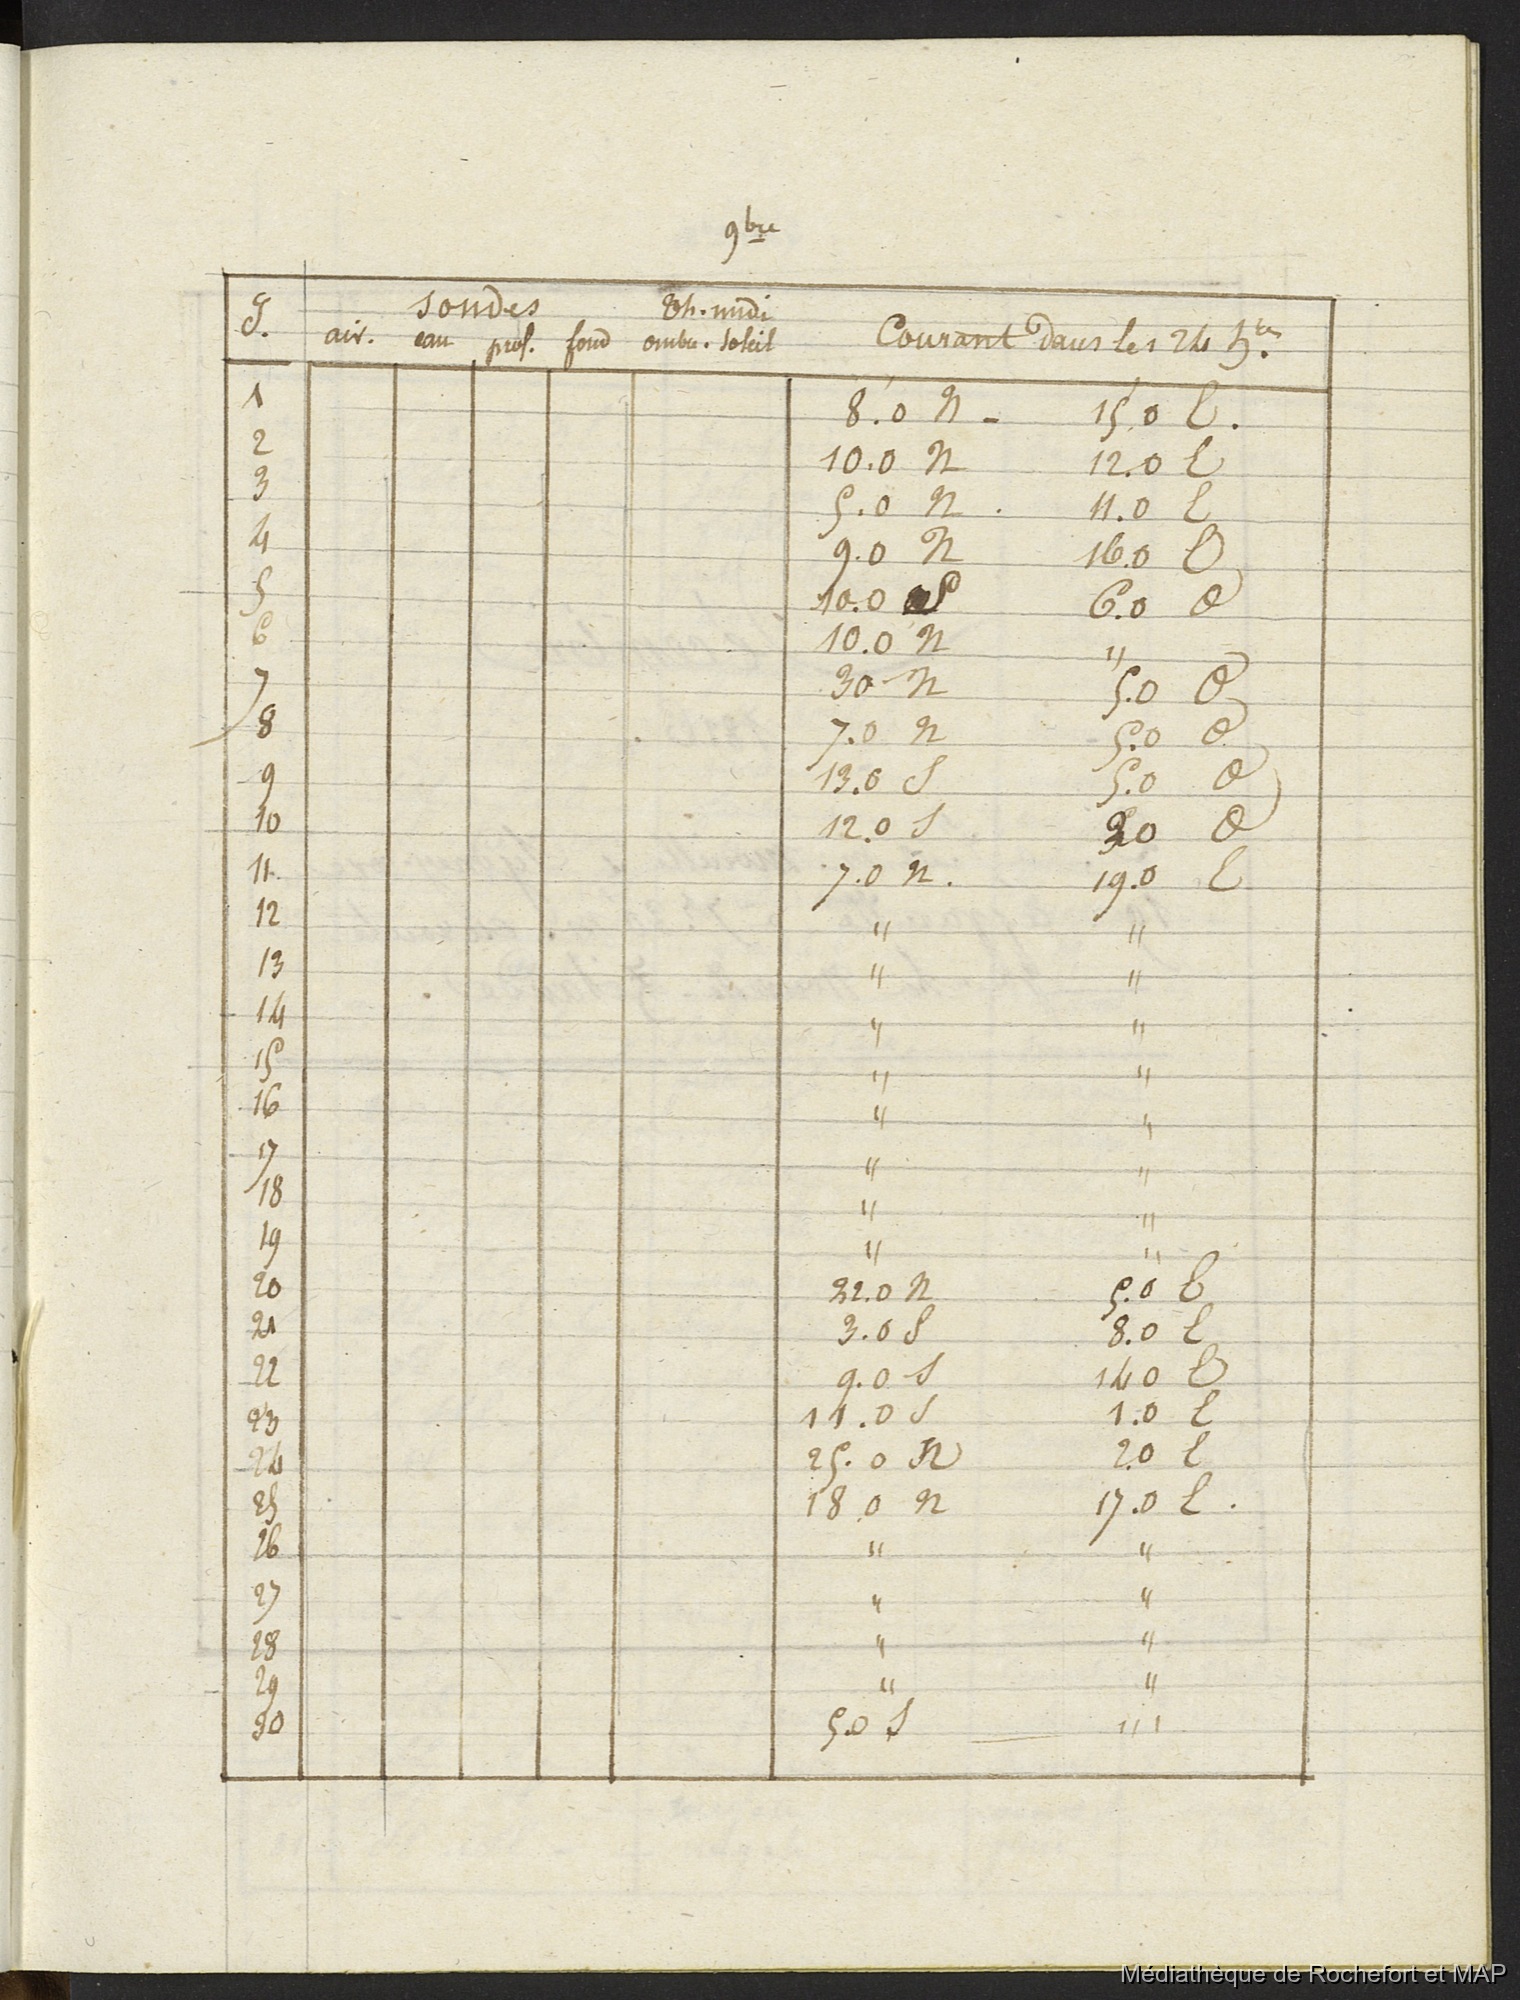 9bre
J. sondes Th. midi Courant dans les 24 hres.
air. eau prof. fond ombre. soleil
1 8'.0 N - 15'.0 E.
2 10.0 N 12.0 E
3 5.0 N . 11.0 E
4 9.0 N 16.0 E
5 10.0 S 6.0 O
6 10.0 N "
7 30 N 5.0 O
8 7.0 N 5.0 O
9 13.0 S 5.0 O
10 12.0 S 20 O
11. 7.0 N. 19.0 E
12 " "
13 " "
14 " "
15 " "
16 " "
17 " "
18 " "
19 " "
20 22.0 N 5.0 E
21 3.0 S 8.0 E
22 9.0 S 14 0 E
23 11.0 S 1.0 E
24 25.0 N 2.0 E
25 18.0 N 17.0 E.
26 " "
27 " "
28 " "
29 " "
30 5.0 S "'
Médiathèque de Rochefort et MAP